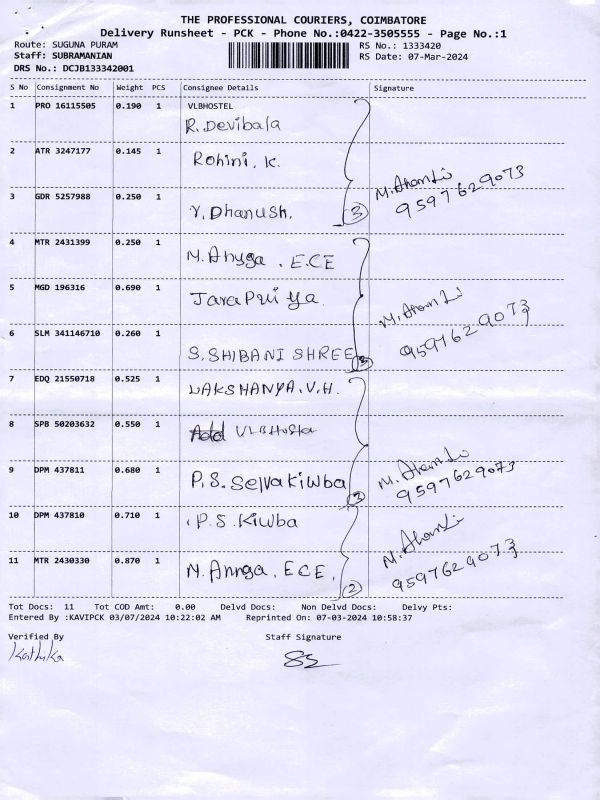 THE PROFESSIONAL COURIERS, COIMBATORE
Delivery Runsheet - PCK - Phone No.:0422-3505555 - Page No.:1
Route: SUGUNA PURAM RS No.: 1333420
Staff: SUBRAMANIAN RS Date: 07-Mar-2024
DRS No.: DCJB133342001
S No Consignment No Weight PCS Consignee Details Signature
1 PRO 16115505 0.190 1 VLBHOSTEL
R. Devibala
2 ATR 3247177 0.145 1 Rohini. K.
3 GDR 5257988 0.250 1 Y. Dhanush.
3
9597629073
4 MTR 2431399 0.250 1 ECE
5 MGD 196316 0.690 1
6 SLM 341146710 0.260 1 S. SHIBANI SHREE
3
9597629073
7 EDQ 21550718 0.525 1 LAKSHANYA. V. H.
8 SPB 50203632 0.550 1
9 DPM 437811 0.680 1 P. S. Selvakiwba
3
9597629073
10 DPM 437810 0.710 1 P. S. Kiwba
11 MTR 2430330 0.870 1 ECE.
2
9597629073
Tot Docs: 11 Tot COD Amt: 0.00 Delvd Docs: Non Delvd Docs: Delvy Pts:
Entered By :KAVIPCK 03/07/2024 10:22:02 AM Reprinted On: 07-03-2024 10:58:37
Verified By Staff Signature